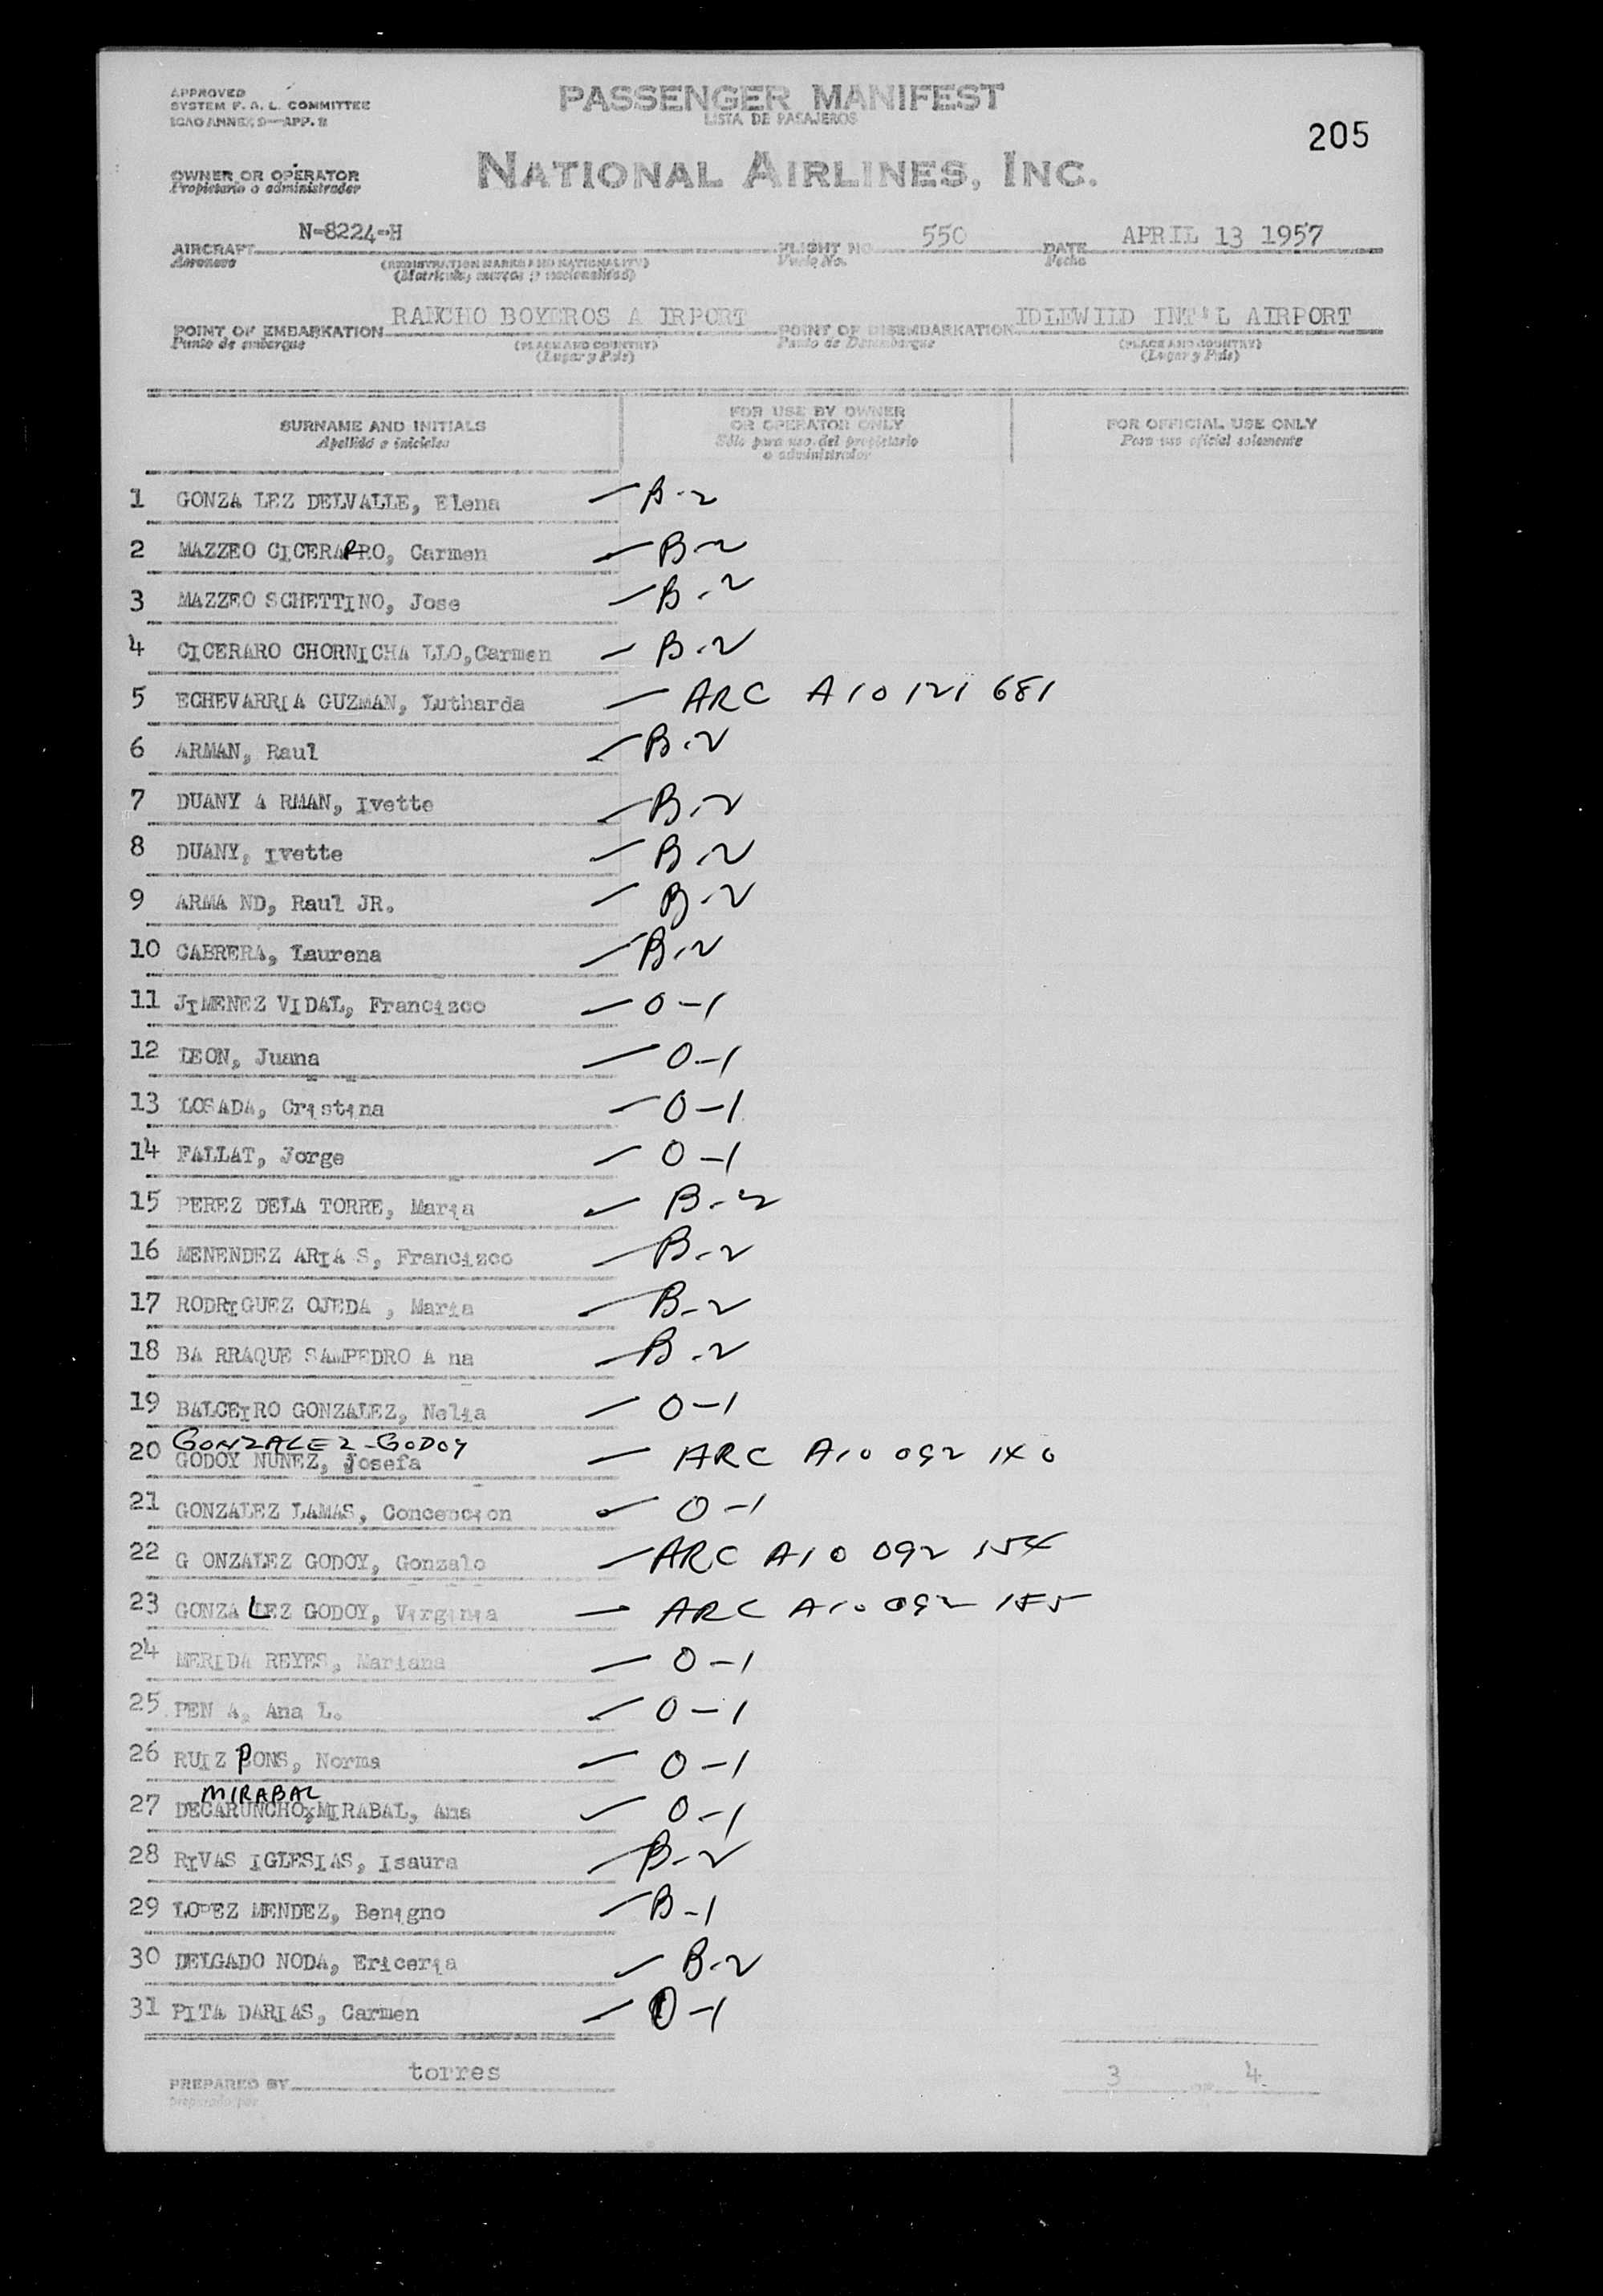 APPROVED
SYSTEM F. A. L. COMMITTEE
ICAO ANNEX 9—APP. 2
PASSENGER MANIFEST
LISTA DE PASAJEROS
205
OWNER OR OPERATOR
Propietario o administrador
NATIONAL AIRLINES, INC.
AIRCRAFT N-8224-H FLIGHT NO. 550 DATE APRIL 13 1957
Aeronave (REGISTRATION MARKS AND NATIONALITY) Vuelo No. Fecha
(Matricula, marcas y nacionalidad)
POINT OF EMBARKATION RANCHO BOYEROS A IRPORT POINT OF DISEMBARKATION IDLEWILD INT'L AIRPORT
Punto de embarque (PLACE AND COUNTRY) Punto de Desembarque (PLACE AND COUNTRY)
(Lugar y Pais) (Lugar y Pais)
SURNAME AND INITIALS
Apellido e iniciales
FOR USE BY OWNER
OR OPERATOR ONLY
Sólo para uso del propietario
o administrador
FOR OFFICIAL USE ONLY
Para uso oficial solamente
1 GONZA LEZ DELVALLE, Elena — B-2
2 MAZZEO CICERARRO, Carmen — B-2
3 MAZZEO SCHETTINO, Jose — B-2
4 CICERARO CHORNICHA LLO,Carmen — B-2
5 ECHEVARRIA GUZMAN, Lutharda — ARC A10 121 681
6 ARMAN, Raul — B-2
7 DUANY A RMAN, Ivette — B-2
8 DUANY, Ivette — B-2
9 ARMA ND, Raul JR. — B-2
10 CABRERA, Laurena — B-2
11 JIMENEZ VIDAL, Francizco — O-1
12 LEON, Juana — O-1
13 LOSADA, Cristina — O-1
14 FALLAT, Jorge — O-1
15 PEREZ DELA TORRE, Maria — B-2
16 MENENDEZ ARIA S, Francizco — B-2
17 RODRIGUEZ OJEDA , Maria — B-2
18 BA RRAQUE SAMPEDRO A na — B-2
19 BALCEIRO GONZALEZ, Nelia — O-1
GONZALEZ-GODOY
20 GODOY NUNEZ, Josefa — ARC A10 092 140
21 GONZALEZ LAMAS, Concepcion — O-1
22 G ONZALEZ GODOY, Gonzalo — ARC A10 092 154
23 GONZA LEZ GODOY, Virginia — ARC A10 092 155
24 MERIDA REYES, Mariana — O-1
25 PEN A, Ana L. — O-1
26 RUIZ PONS, Norma — O-1
MIRABAL
27 DECARUNCHOxMIRABAL, Ana — O-1
28 RIVAS IGLESIAS, Isaura — B-2
29 LOPEZ MENDEZ, Benigno — B-1
30 DELGADO NODA, Ericeria — B-2
31 PITA DARIAS, Carmen — O-1
PREPARED BY torres 3 OF 4
preparado por